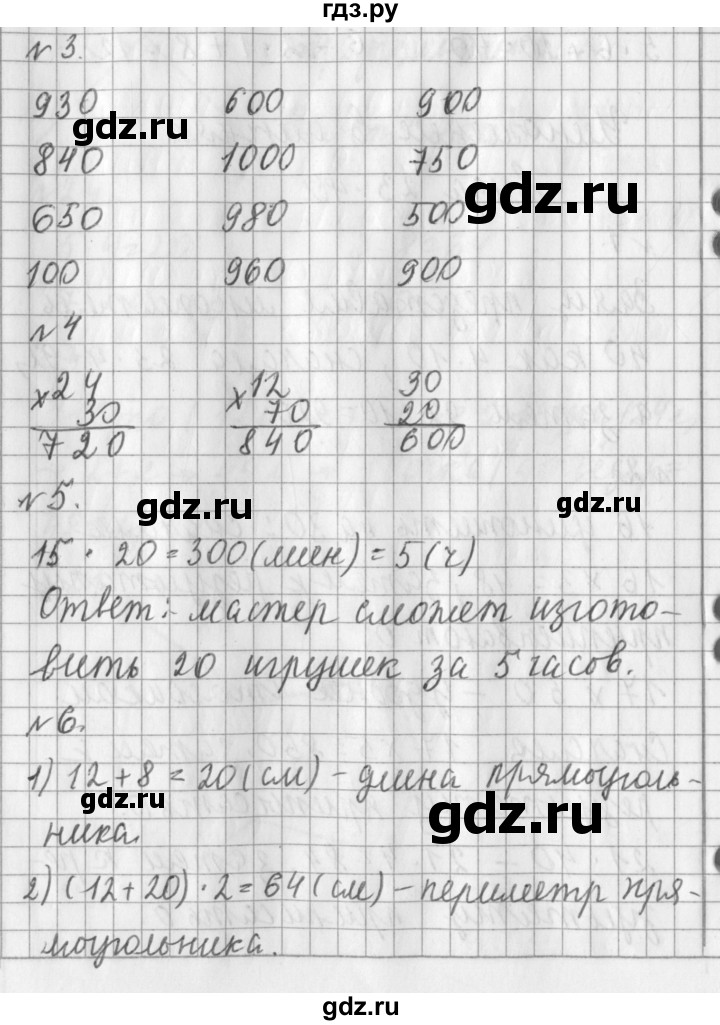 гдз.ру
№ 3.
930 600 900
gdz.ru
840 1000 750
gdz.ru
650 980 500
100 960 900
№ 4
×24 ×12 30
30 70 20
720 840 600
№ 5.
gdz.ru
gdz.ru
15 · 20 = 300 (мин) = 5 (ч)
Ответ: мастер сможет изгото-
вить 20 игрушек за 5 часов.
№ 6.
1) 12 + 8 = 20 (см) - длина прямоуголь-
gdz.ru
gdz.ru
ника.
2) (12 + 20) · 2 = 64 (см) - периметр пря-
моугольника.
gdz.ru